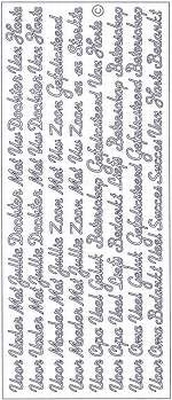 Voor Vader Met Jullie Dochter Met Uw Dochter Van Harte
Voor Vader Met Jullie Dochter Met Uw Dochter Van Harte
Voor Moeder Met Jullie Zoon Met Uw Zoon Gefeliciteerd
Voor Moeder Met Jullie Zoon Met Uw Zoon en Sterkte
Voor Opa Veel Geluk Beterschap Gefeliciteerd Van Harte ©
Voor Opa Veel Liefs Bedankt Liefs Beterschap
Voor Oma Veel Geluk Gefeliciteerd Beterschap
Voor Oma Bedankt Veel Succes Succes Van Harte Bedankt